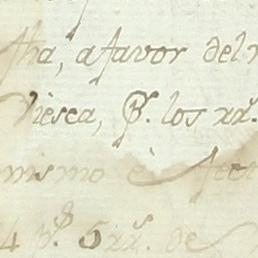 fha, a favor del
Viesca, P. los rr.
mismo è
4 p.s 5 rr. de